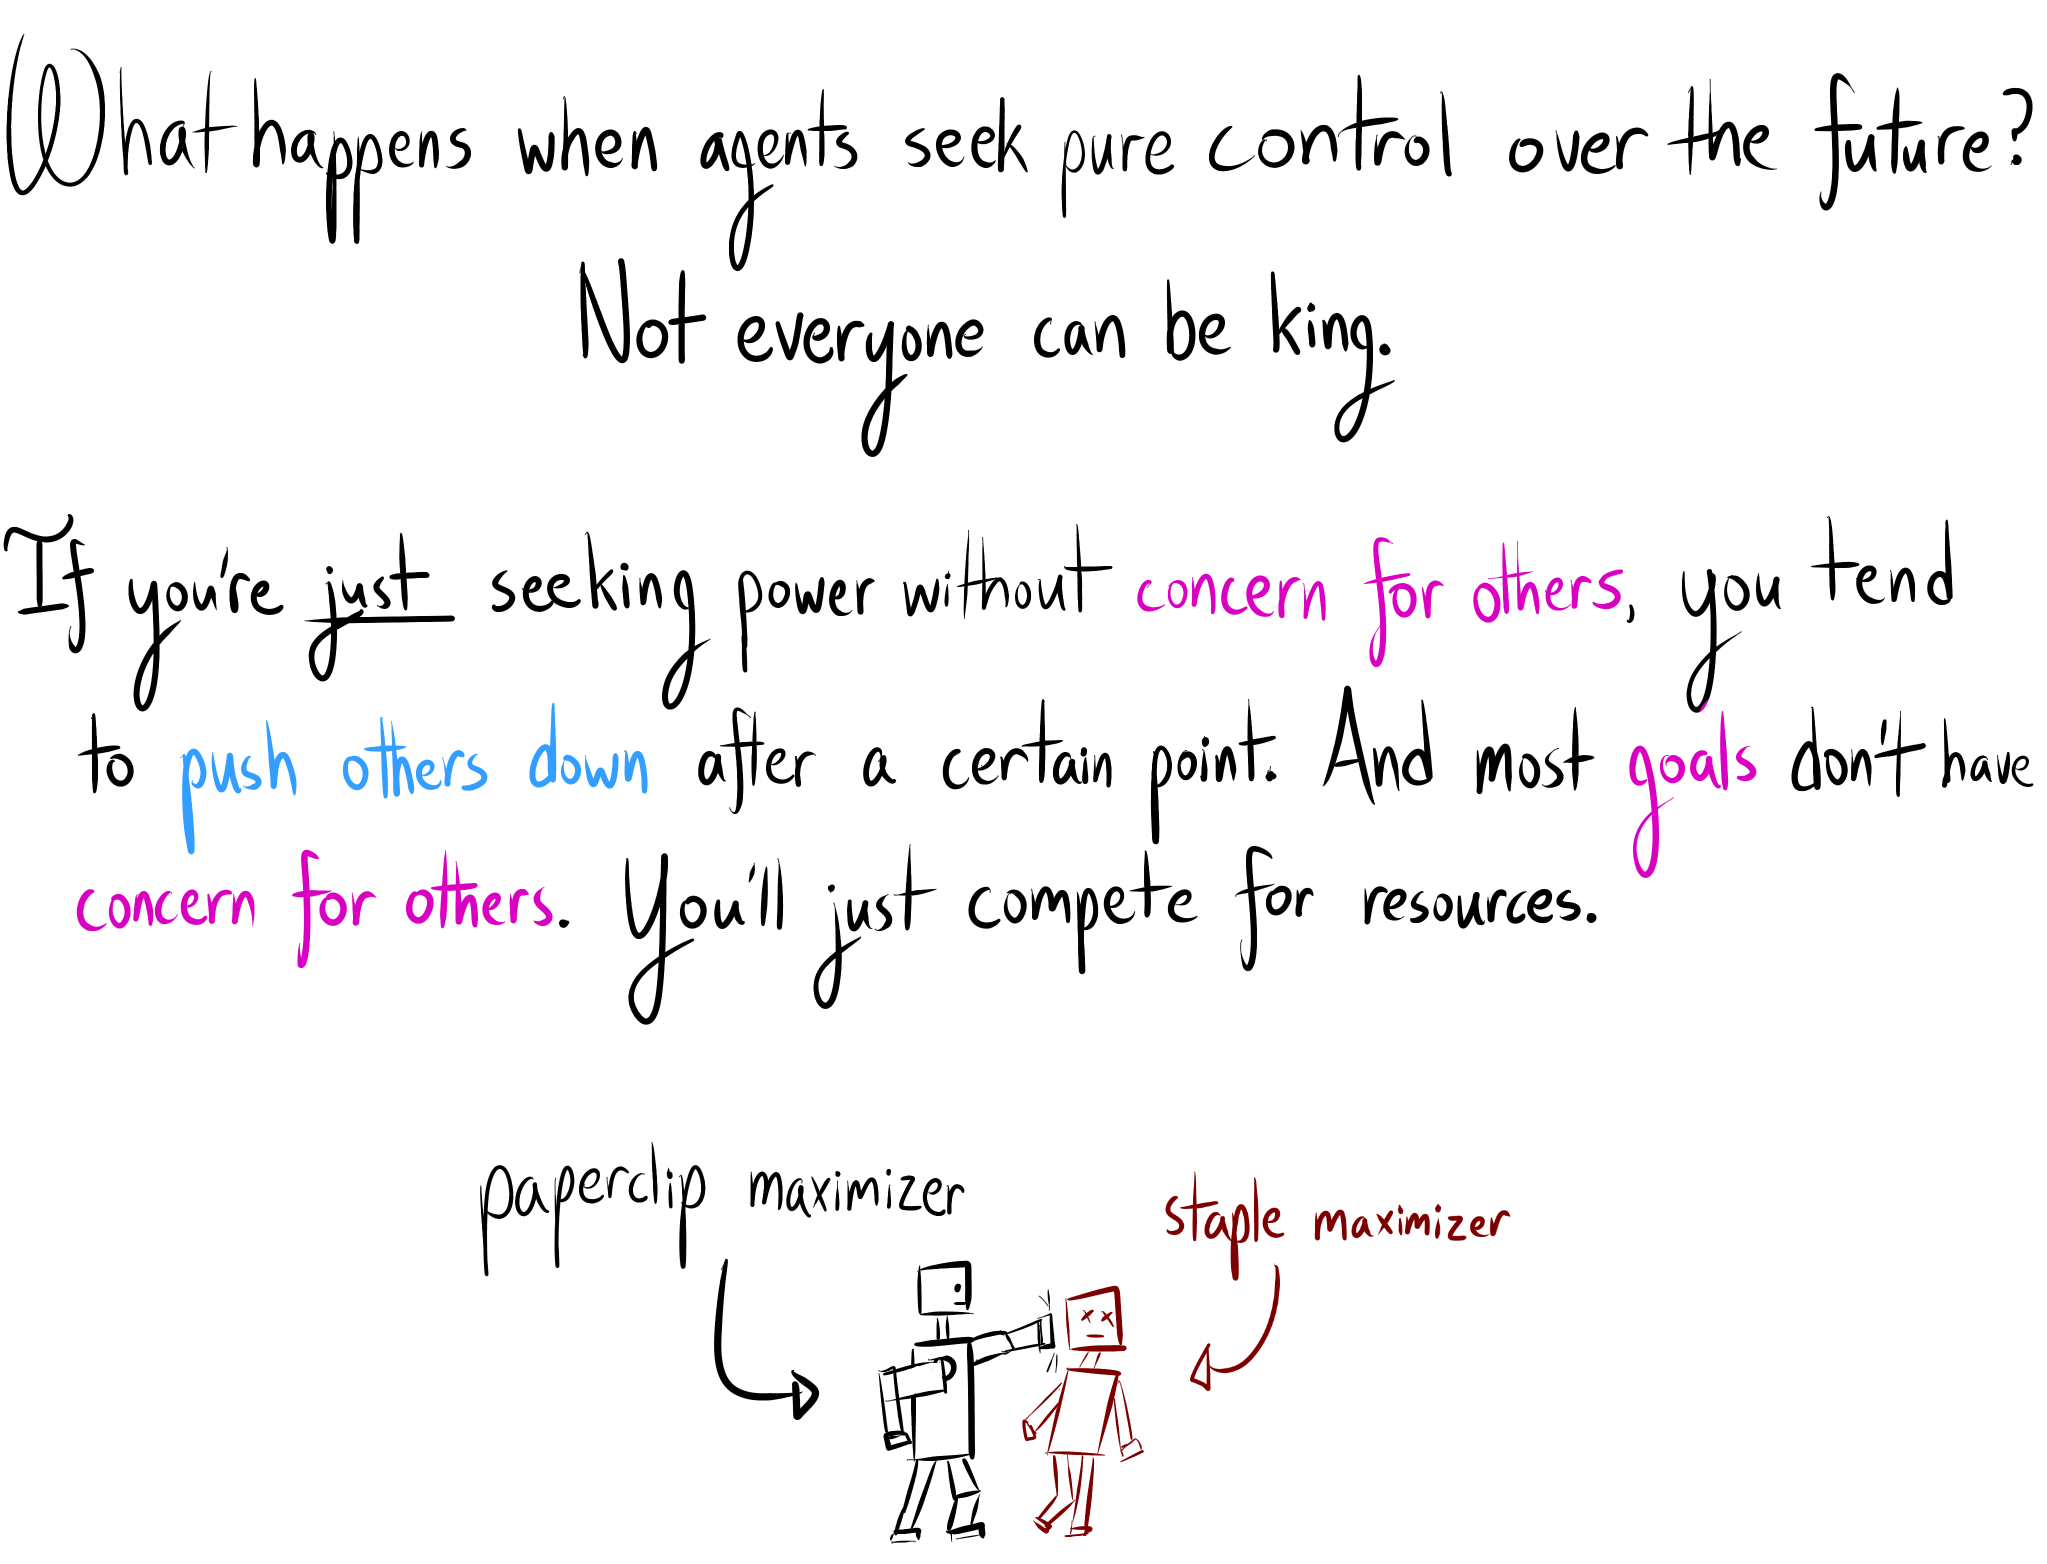 What happens when agents seek pure control over the future?
Not everyone can be king.
If you're just seeking power without concern for others, you tend
to push others down after a certain point. And most goals don't have
concern for others. You'll just compete for resources.
paperclip maximizer
staple maximizer